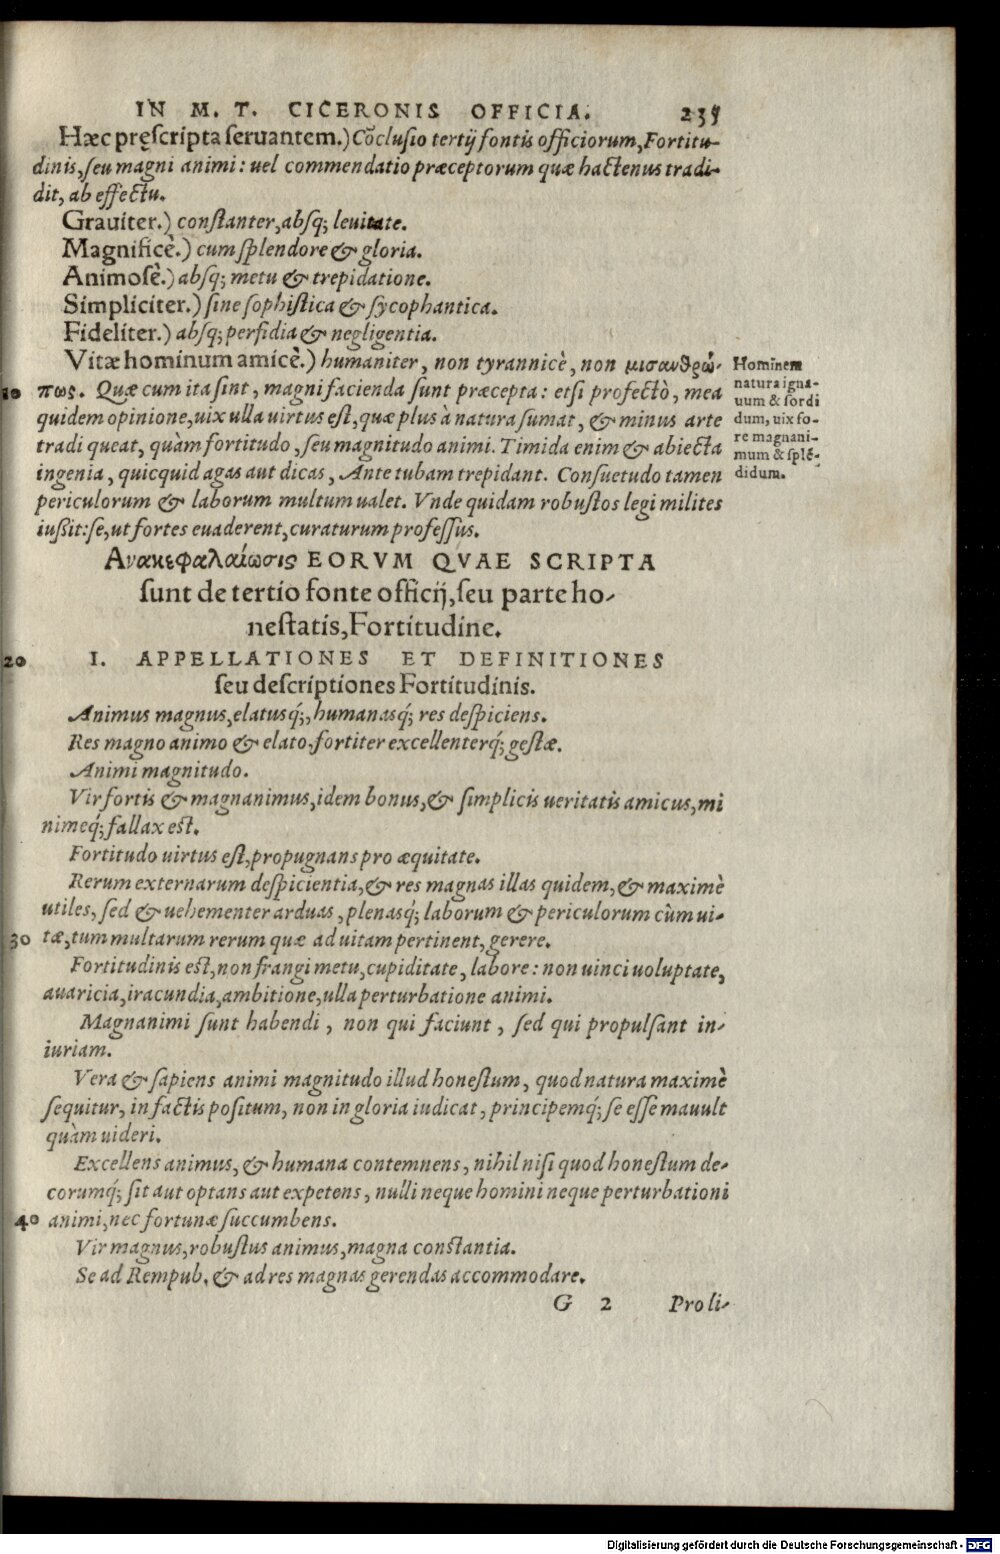 IN M. T. CICERONIS OFFICIA. 235
Hæc pręscripta seruantem.) Cōclusio tertij fontis officiorum, Fortitu-
dinis, seu magni animi: uel commendatio præceptorum quæ hactenus tradi-
dit, ab effectu.
Grauiter.) constanter, absq; leuitate.
Magnificè.) cum splendore & gloria.
Animosè.) absq; metu & trepidatione.
Simpliciter.) sine sophistica & sycophantica.
Fideliter.) absq; perfidia & negligentia.
Vitæ hominum amicè.) humaniter, non tyrannicè, non μισανθρώ-
10 πως. Quæ cum ita sint, magni facienda sunt præcepta: etsi profectò, mea
quidem opinione, uix ulla uirtus est, quæ plus à natura sumat, & minus arte
tradi queat, quàm fortitudo, seu magnitudo animi. Timida enim & abiecta
ingenia, quicquid agas aut dicas, Ante tubam trepidant. Consuetudo tamen
periculorum & laborum multum ualet. Vnde quidam robustos legi milites
iussit: se, ut fortes euaderent, curaturum professus.
Hominem
natura igna-
uum & sordi
dum, uix fo-
re magnani-
mum & splē-
didum.
Ανακεφαλαίωσις EORVM QVAE SCRIPTA
sunt de tertio fonte officij, seu parte ho-
nestatis, Fortitudine.
20 I. APPELLATIONES ET DEFINITIONES
seu descriptiones Fortitudinis.
Animus magnus, elatusq́;, humanasq́; res despiciens.
Res magno animo & elato, fortiter excellenterq́; gestæ.
Animi magnitudo.
Vir fortis & magnanimus, idem bonus, & simplicis ueritatis amicus, mi
nimeq́; fallax est.
Fortitudo uirtus est, propugnans pro æquitate.
Rerum externarum despicientia, & res magnas illas quidem, & maximè
utiles, sed & uehementer arduas, plenasq́; laborum & periculorum cùm ui-
30 tæ, tum multarum rerum quæ ad uitam pertinent, gerere.
Fortitudinis est, non frangi metu, cupiditate, labore: non uinci uoluptate,
auaricia, iracundia, ambitione, ulla perturbatione animi.
Magnanimi sunt habendi, non qui faciunt, sed qui propulsant in-
iuriam.
Vera & sapiens animi magnitudo illud honestum, quod natura maximè
sequitur, in factis positum, non in gloria iudicat, principemq́; se esse mauult
quàm uideri.
Excellens animus, & humana contemnens, nihil nisi quod honestum de-
corumq́; sit aut optans aut expetens, nulli neque homini neque perturbationi
40 animi, nec fortunæ succumbens.
Vir magnus, robustus animus, magna constantia.
Se ad Rempub. & ad res magnas gerendas accommodare.
G 2 Pro li-
Digitalisierung gefördert durch die Deutsche Forschungsgemeinschaft - DFG